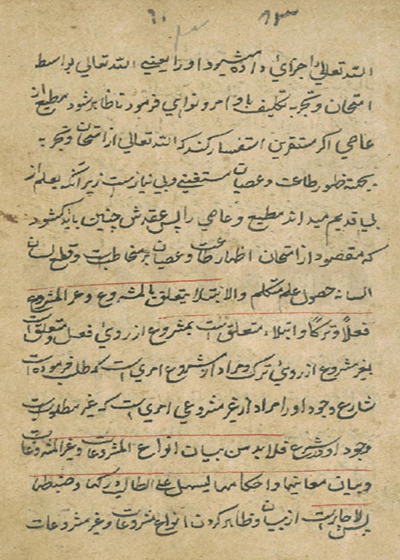 الله تعالی اجرای داده میشود او را یعنی الله تعالی بواسط
امتحان و تجربه تکلیف باوامر و نواهی فرمود تا ظاهر شود مطیع از
عاصی اگر مستفسرین استفسار کنند که الله تعالی از امتحان و تجربه
بجهة ظهور طاعت و عصیان مستغنی و بی نیازست زیرا که بعلم از
لی قدیم میداند مطیع و عاصی را پس عقدش چنین باید کشود
که مقصود از امتحان اظهار طاعت و عصیان بر مخاطب است و قطع لسان
انسانه حصول علم متکلم والابتلاء یتعلق بالمشروع وغیر المشروع
فعلا وترکا و ابتلاء متعلق است بمشروع از روی فعل و متعلق است
بغیر مشروع از روی ترک و مراد از مشروع امری است که طلب فرموده است
شارع وجود او را و مراد از غیر مشروع امری است که غیر مطلوب است
وجود او در شرع فلابد من بیان انواع المشروعات وغیر المشروعات
وبیان معانیها واحکامها لیسهل علی الطالب درکها وضبطها
پس لاچارست از بیان و ظاهر کردن انواع مشروعات و غیر مشروعات